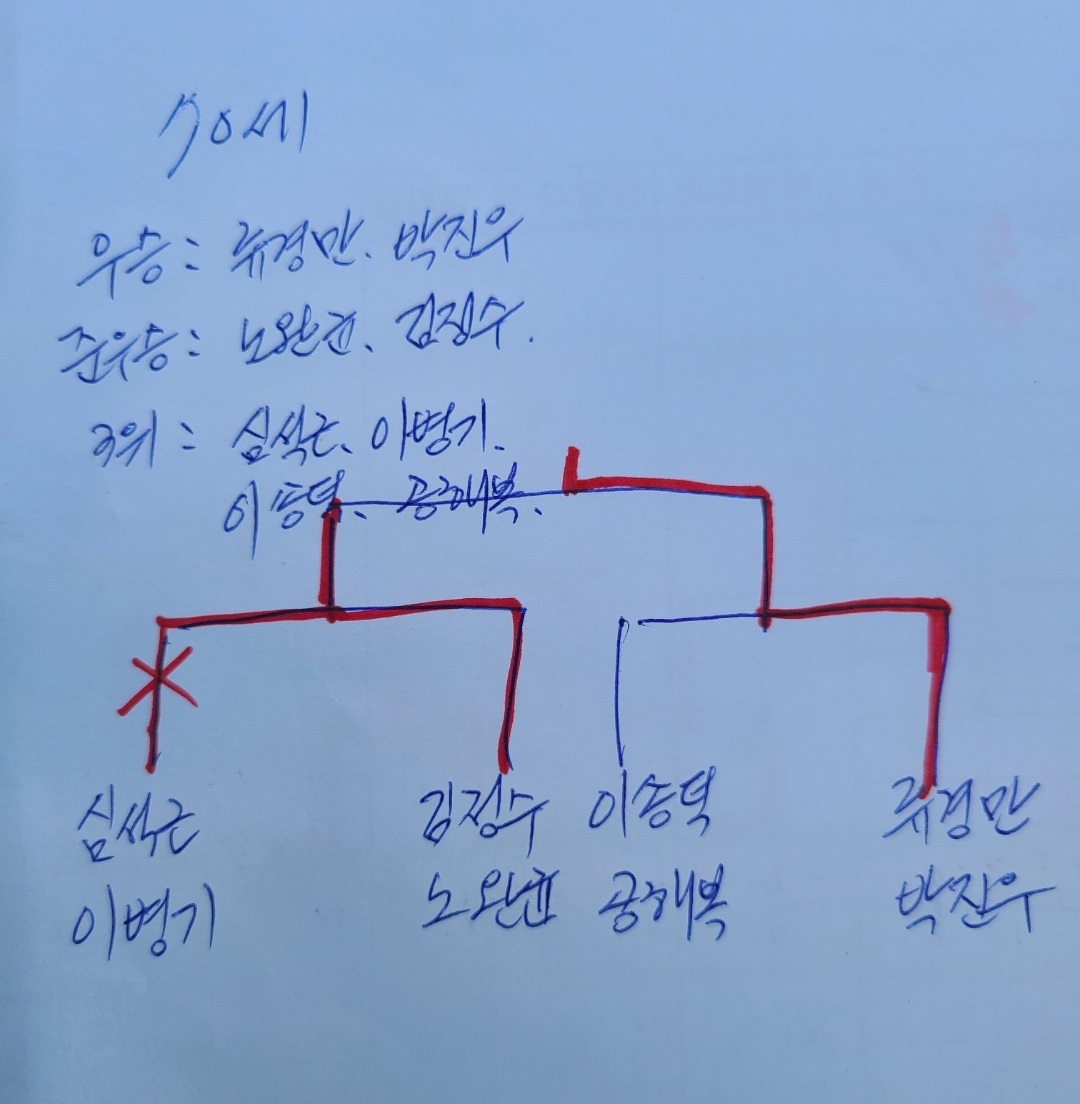 70세
우승: 류경만. 박진우
준우승: 노완균. 김정수.
3위: 심석근. 이병기.
이송덕. 공해복.
심석근
이병기
김정수
노완균
이송덕
공해복
류경만
박진우